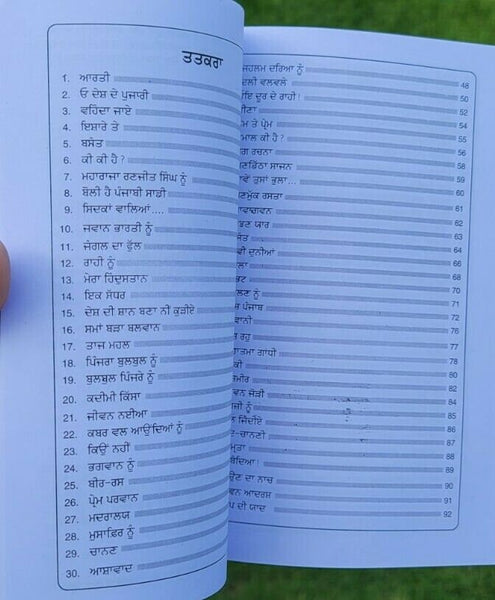 ਤਤਕਰਾ
1. ਆਰਤੀ
2. ਓ ਦੇਸ਼ ਦੇ ਪੁਜਾਰੀ
3. ਵਹਿੰਦਾ ਜਾਏ
4. ਇਸ਼ਾਰੇ ਤੇ
5. ਬਸੰਤ
6. ਕੀ ਕੀ ਹੈ ?
7. ਮਹਾਰਾਜਾ ਰਣਜੀਤ ਸਿੰਘ ਨੂੰ
8. ਬੋਲੀ ਹੈ ਪੰਜਾਬੀ ਸਾਡੀ
9. ਸਿਦਕਾਂ ਵਾਲਿਆਂ ....
10. ਜਵਾਨ ਭਾਰਤੀ ਨੂੰ
11. ਜੰਗਲ ਦਾ ਫੁੱਲ
12. ਰਾਹੀ ਨੂੰ
13. ਮੇਰਾ ਹਿੰਦੁਸਤਾਨ
14. ਇਕ ਸੱਧਰ
15. ਦੇਸ਼ ਦੀ ਸ਼ਾਨ ਬਣਾ ਨੀਂ ਕੁੜੀਏ
16. ਸਮਾਂ ਬੜਾ ਬਲਵਾਨ
17. ਤਾਜ ਮਹਲ
18. ਪਿੰਜਰਾ ਬੁਲਬੁਲ ਨੂੰ
19. ਬੁਲਬੁਲ ਪਿੰਜਰੇ ਨੂੰ
20. ਕਦੀਮੀ ਕਿੱਸਾ
21. ਜੀਵਨ ਨਈਆ
22. ਕਬਰ ਵਲ ਆਉਂਦਿਆਂ ਨੂੰ
23. ਕਿਉਂ ਨਹੀਂ
24. ਭਗਵਾਨ ਨੂੰ
25. ਬੀਰ-ਰਸ
26. ਪ੍ਰੇਮ ਪਰਵਾਨ
27. ਮਦਰਾਲਯ
28. ਮੁਸਾਫ਼ਿਰ ਨੂੰ
29. ਚਾਨਣ
30. ਆਸ਼ਾਵਾਦ
ਦਰਿਆ ਨੂੰ 48
ਵਲਵਲੇ 50
ਦੂਰ ਦੇ ਰਾਹੀ ! 52
54
ਤੇ ਪ੍ਰੇਮ 55
ਕੀ ਹੈ ? 56
ਰਚਨਾ 58
ਸਾਜਨ 59
ਤੁਸਾਂ ਭੁਲਾ... 60
ਰਸਤਾ 61
62
ਯਾਰ 63
64
ਦੁਨੀਆਂ 66
68
70
ਨੂੰ 71
ਪੰਜਾਬ 72
76
ਰਹੁ 77
ਗਾਂਧੀ 78
80
82
ਜੋੜੀ 84
ਨੂੰ 85
ਜਿੰਦੀਏ 86
87
88
89
ਦਾ ਨਾਚ 90
ਆਦਰਸ਼ 91
ਦੀ ਯਾਦ 92